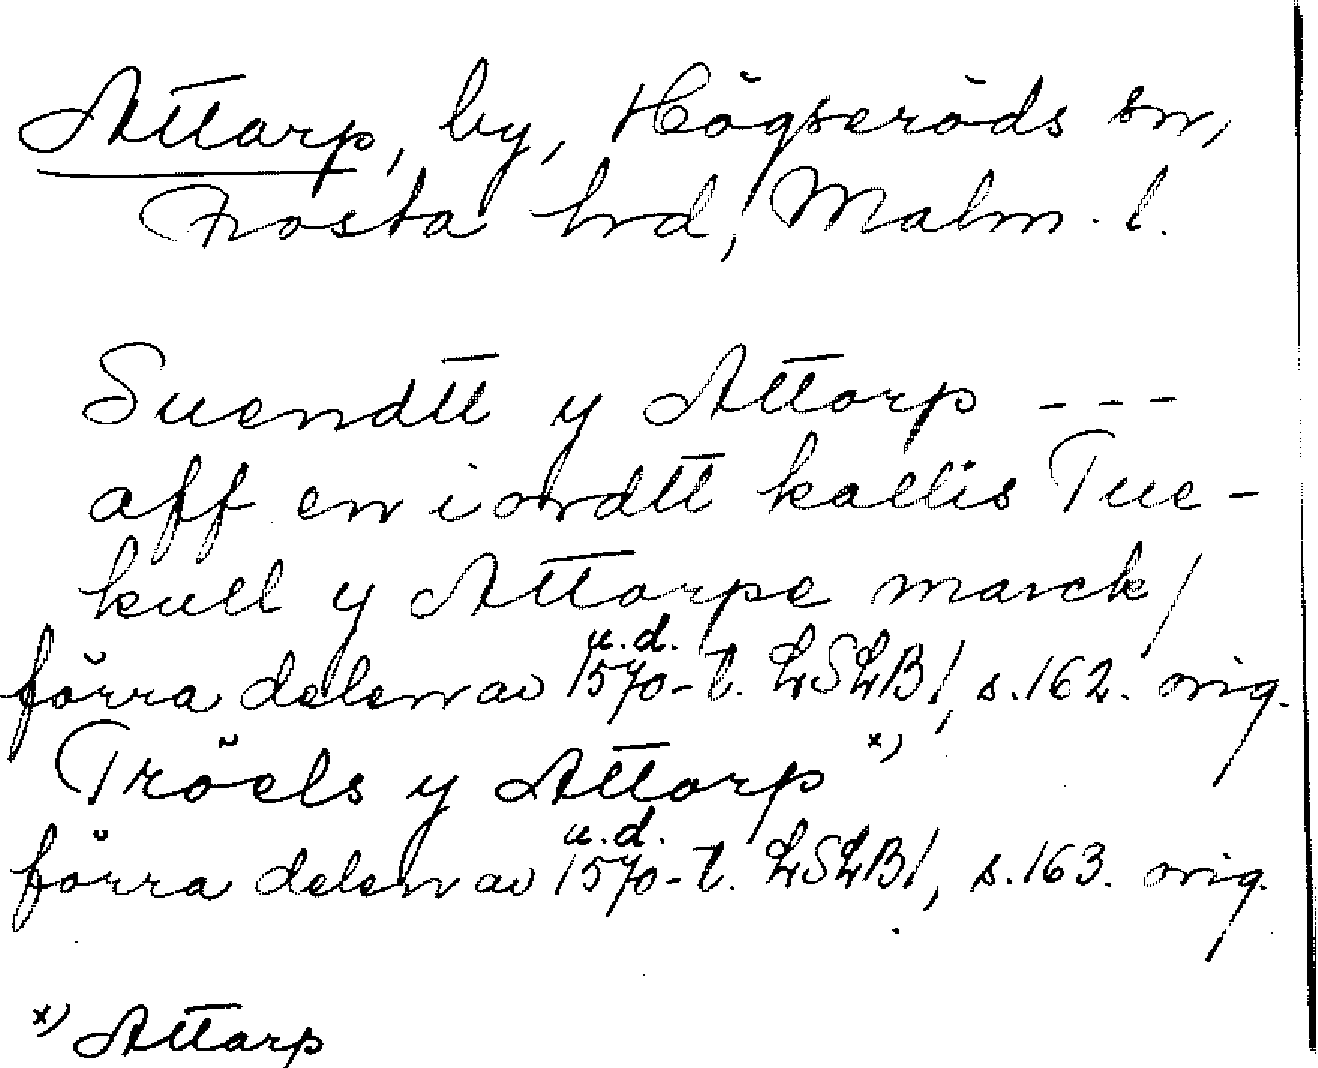 Attarp, by, Högseröds sn,
Frosta hrd, Malm. l.
Suendtt y Attorp ---
aff en iordtt kallis Tue-
kull y Attorpe marck/
u.d.
förra delen av 1570-t. LSLB1, s.162. orig.
Tröels y Attorp x)
u.d.
förra delen av 1570-t. LSLB1, s.163. orig.
x) Attarp